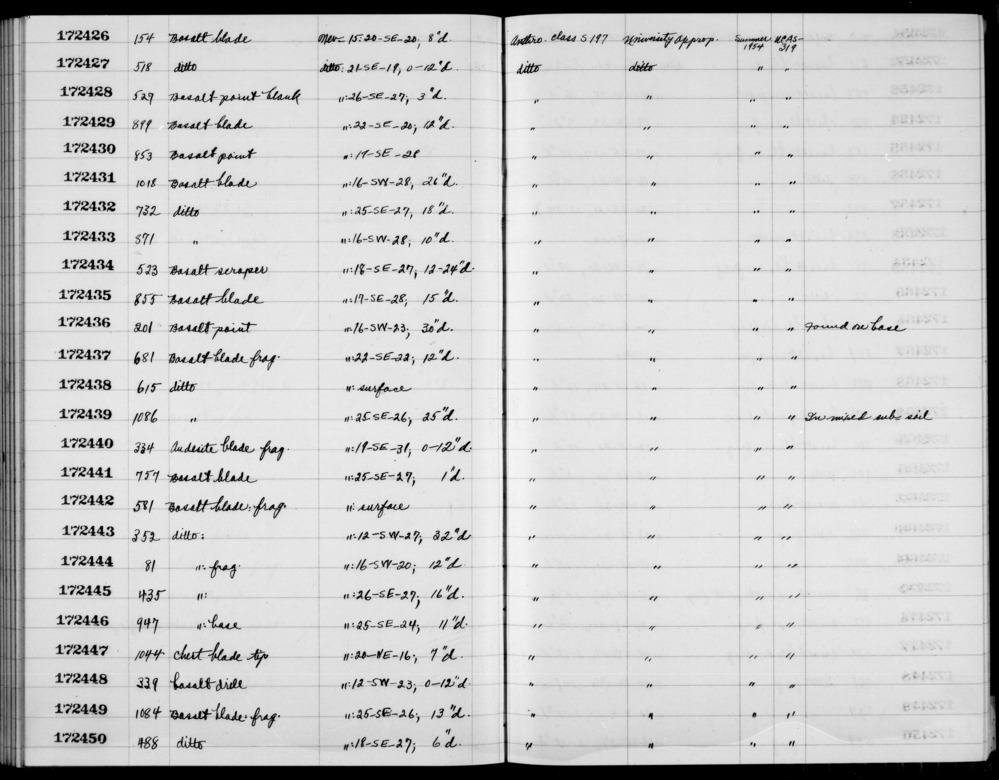 172426 154 Basalt blade Mer-15:20-SE-20, 8"d. Anthro. class S197 University approp. Summer 1954 UCAS-219
172427 518 ditto ditto: 21-SE-19, 0-12"d. ditto ditto " "
172428 529 Basalt point blank ":26-SE-27, 3"d. " " " "
172429 899 Basalt blade ":22-SE-20; 12"d. " " " "
172430 853 Basalt point ":17-SE-28 " " " "
172431 1018 Basalt blade ":16-SW-28, 26"d. " " " "
172432 732 ditto ":25-SE-27, 18"d. " " " "
172433 871 " ":16-SW-28; 10"d. " " " "
172434 523 Basalt scraper ":18-SE-27; 12-24"d. " " " "
172435 855 Basalt blade ":17-SE-28, 15"d. " " " "
172436 201 Basalt point ":16-SW-23; 30"d. " " " " Found on base
172437 681 Basalt blade frag. ":22-SE-22; 12"d. " " " "
172438 615 ditto ": surface " " " "
172439 1086 " ":25-SE-26, 25"d. " " " " In mixed sub-soil
172440 334 Andesite blade frag. ":19-SE-31, 0-12"d. " " " "
172441 757 Basalt blade ":25-SE-27; 1'd. " " " "
172442 581 Basalt blade: frag. ": surface " " " "
172443 352 ditto: ":12-SW-27; 32"d. " " " "
172444 81 ": frag. ":16-SW-20; 12"d. " " " "
172445 435 ": ":26-SE-27; 16"d. " " " "
172446 947 ": base ":25-SE-24; 11"d. " " " "
172447 1044 Chert blade tip ":20-NE-16; 7"d. " " " "
172448 339 basalt drill ":12-SW-23; 0-12"d. " " " "
172449 1084 Basalt blade frag. ":25-SE-26; 13"d. " " " "
172450 488 ditto ":18-SE-27; 6"d. " " " "